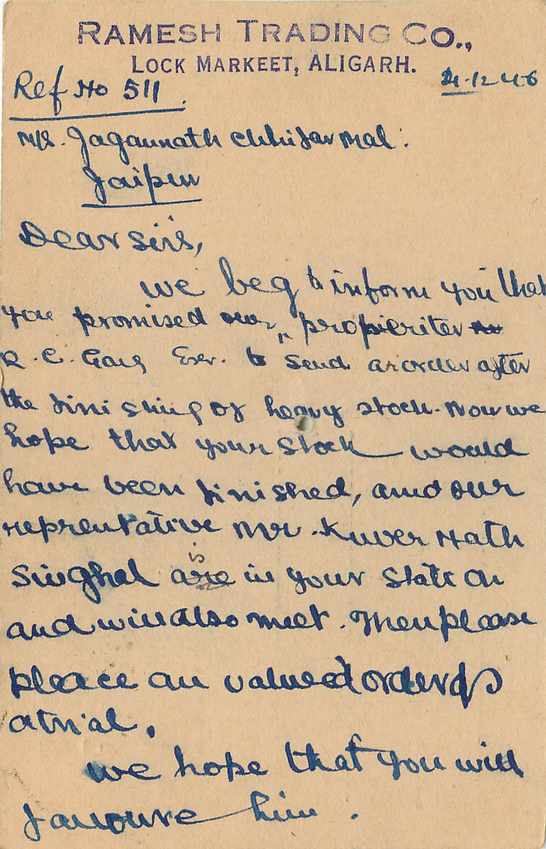 RAMESH TRADING CO.,
LOCK MARKEET, ALIGARH.
Ref No 511.
4-12-46
M/S. Jagannath Chhitar Mal.
Jaipur
Dear sirs,
we beg to inform you that
you promised our propieriter
R. C. Garg Esqr. to send an order after
the finishing of heavy stock. Now we
hope that your stock would
have been finished, and our
reprentative Mr. Kuver Nath
Singhal is in your station
and will also meet. Then please
pleace an valued order as
atrial.
we hope that you will
favoure him.